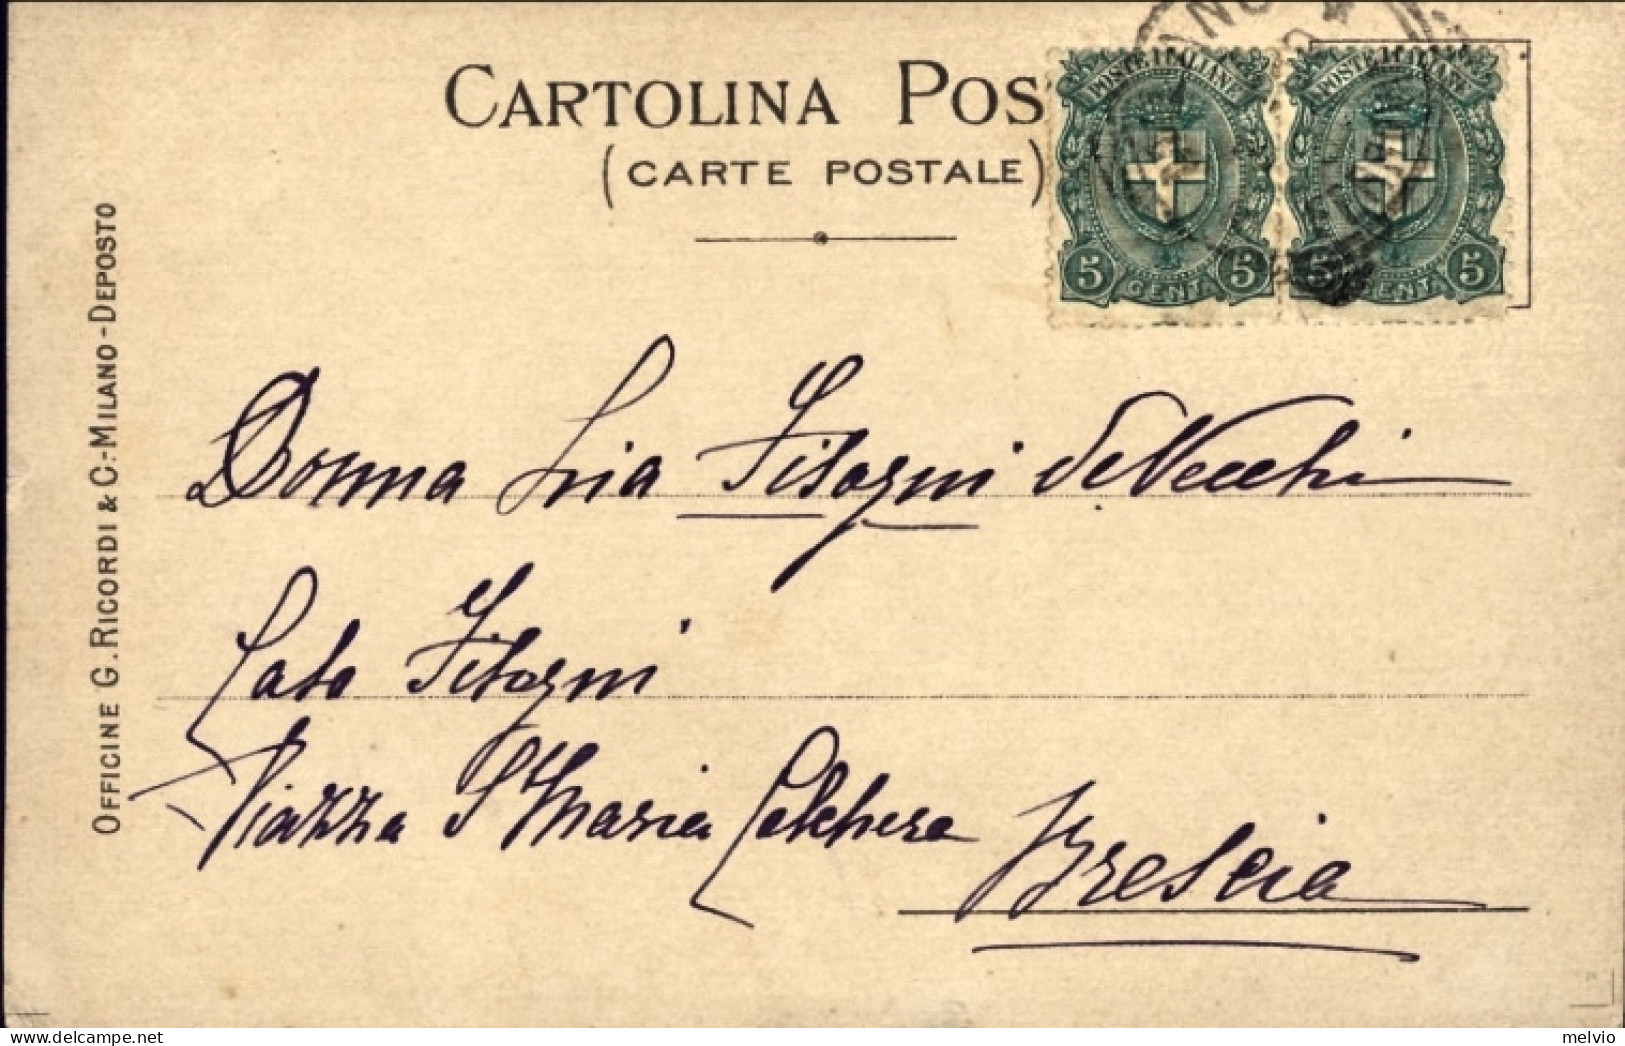 CARTOLINA POS
(CARTE POSTALE)
POSTE ITALIANE
5 CENT. 5
POSTE ITALIANE
5 CENT. 5
OFFICINE G. RICORDI & C.-MILANO-DEPOSTO
Donna Lia Fisogni de Vecchi
Casa Fisogni
Piazza S Maria Calchera
Brescia
delcampe.net
melvio